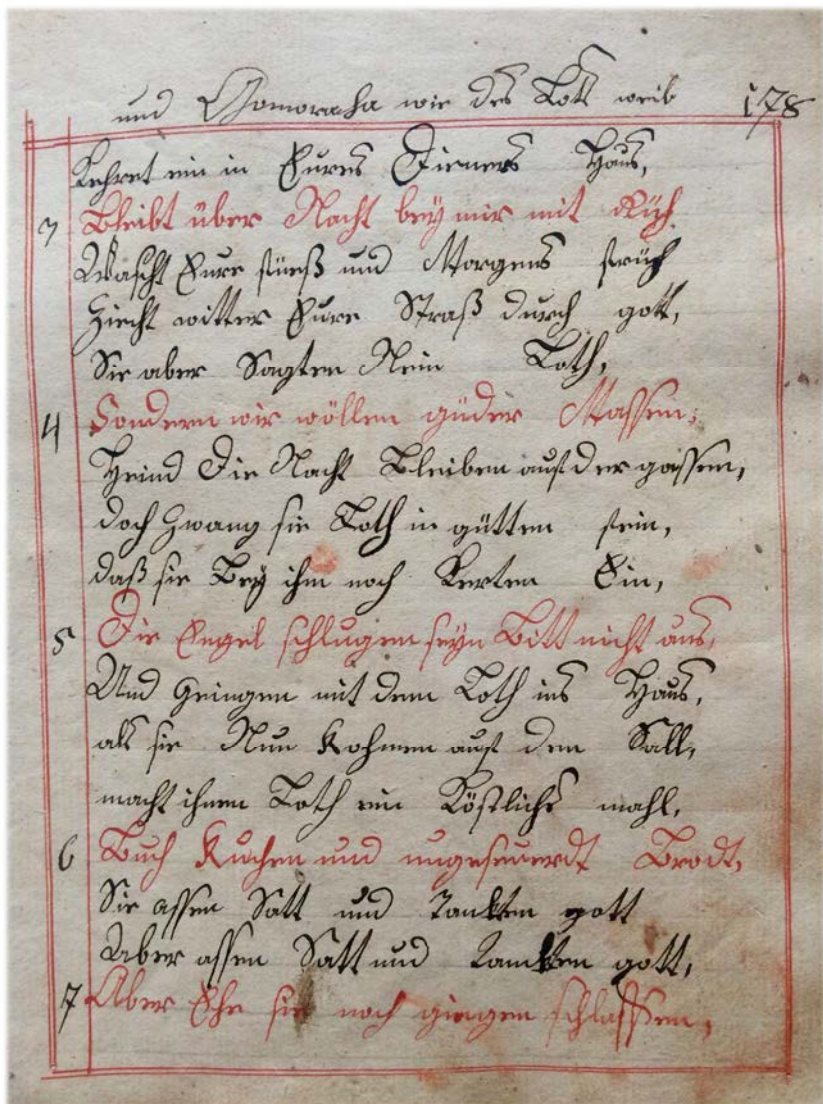 und Gomoracha wie des Lots weib 178
Kehret ein in Eures Dieners Haus,
3 Bleibt über Nacht bey mir mit Rüh
Wascht Eure füeß und Morgens früh
Ziecht witter Eure Straß durch gott,
Sie aber Sagten Nein Loth,
4 Sondern wir wöllen güder Massen,
Heind Die Nacht Bleiben auf der gassen,
doch Zwang sie Loth in gütten fein,
daß sie Bey ihm noch Kerten Ein,
5 Die Engel schlugen seyn Bitt nicht aus,
Und Geingen mit dem Loth ins Haus,
als sie Nun Kohmen auf den Sall,
macht ihnen Loth ein Köstlichs mahl,
6 Buch Kuchen und ungeseuerdt Brodt,
Sie assen Satt und Tankten gott
Aber assen Satt und Tankten gott,
7 Aber Ehe sie noch giengen schlaffen,